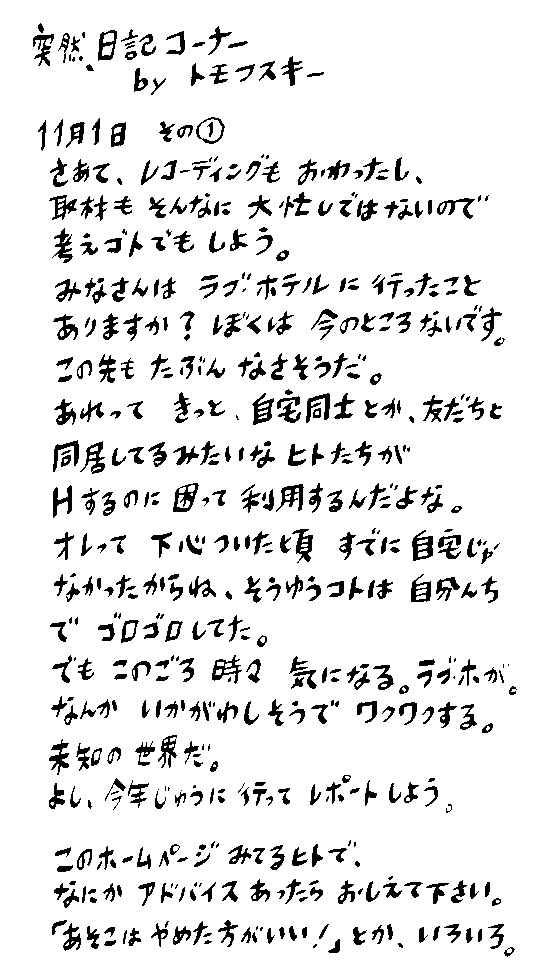 突然、日記コーナー
by トモフスキー
11月1日 その①
さあて、レコーディングも おわったし、
取材も そんなに 大忙しではないので
考えゴトでも しよう。
みなさんは ラブ・ホテルに 行ったこと
ありますか? ぼくは 今のところないです。
この先も たぶん なさそうだ。
あれって きっと、自宅同士とか、友だちと
同居してるみたいな ヒトたちが
Hするのに 困って 利用するんだよな。
オレって 下心ついた頃 すでに 自宅じゃ
なかったからね、そうゆうコトは 自分んち
で ゴロゴロしてた。
でも このごろ 時々 気になる。ラブ・ホが。
なんか いかがわしそうで ワクワクする。
未知の 世界だ。
よし、今年じゅうに 行って レポートしよう。
このホームページ みてるヒトで、
なにか アドバイス あったら おしえて下さい。
「あそこは やめた方がいい!」とか、いろいろ。